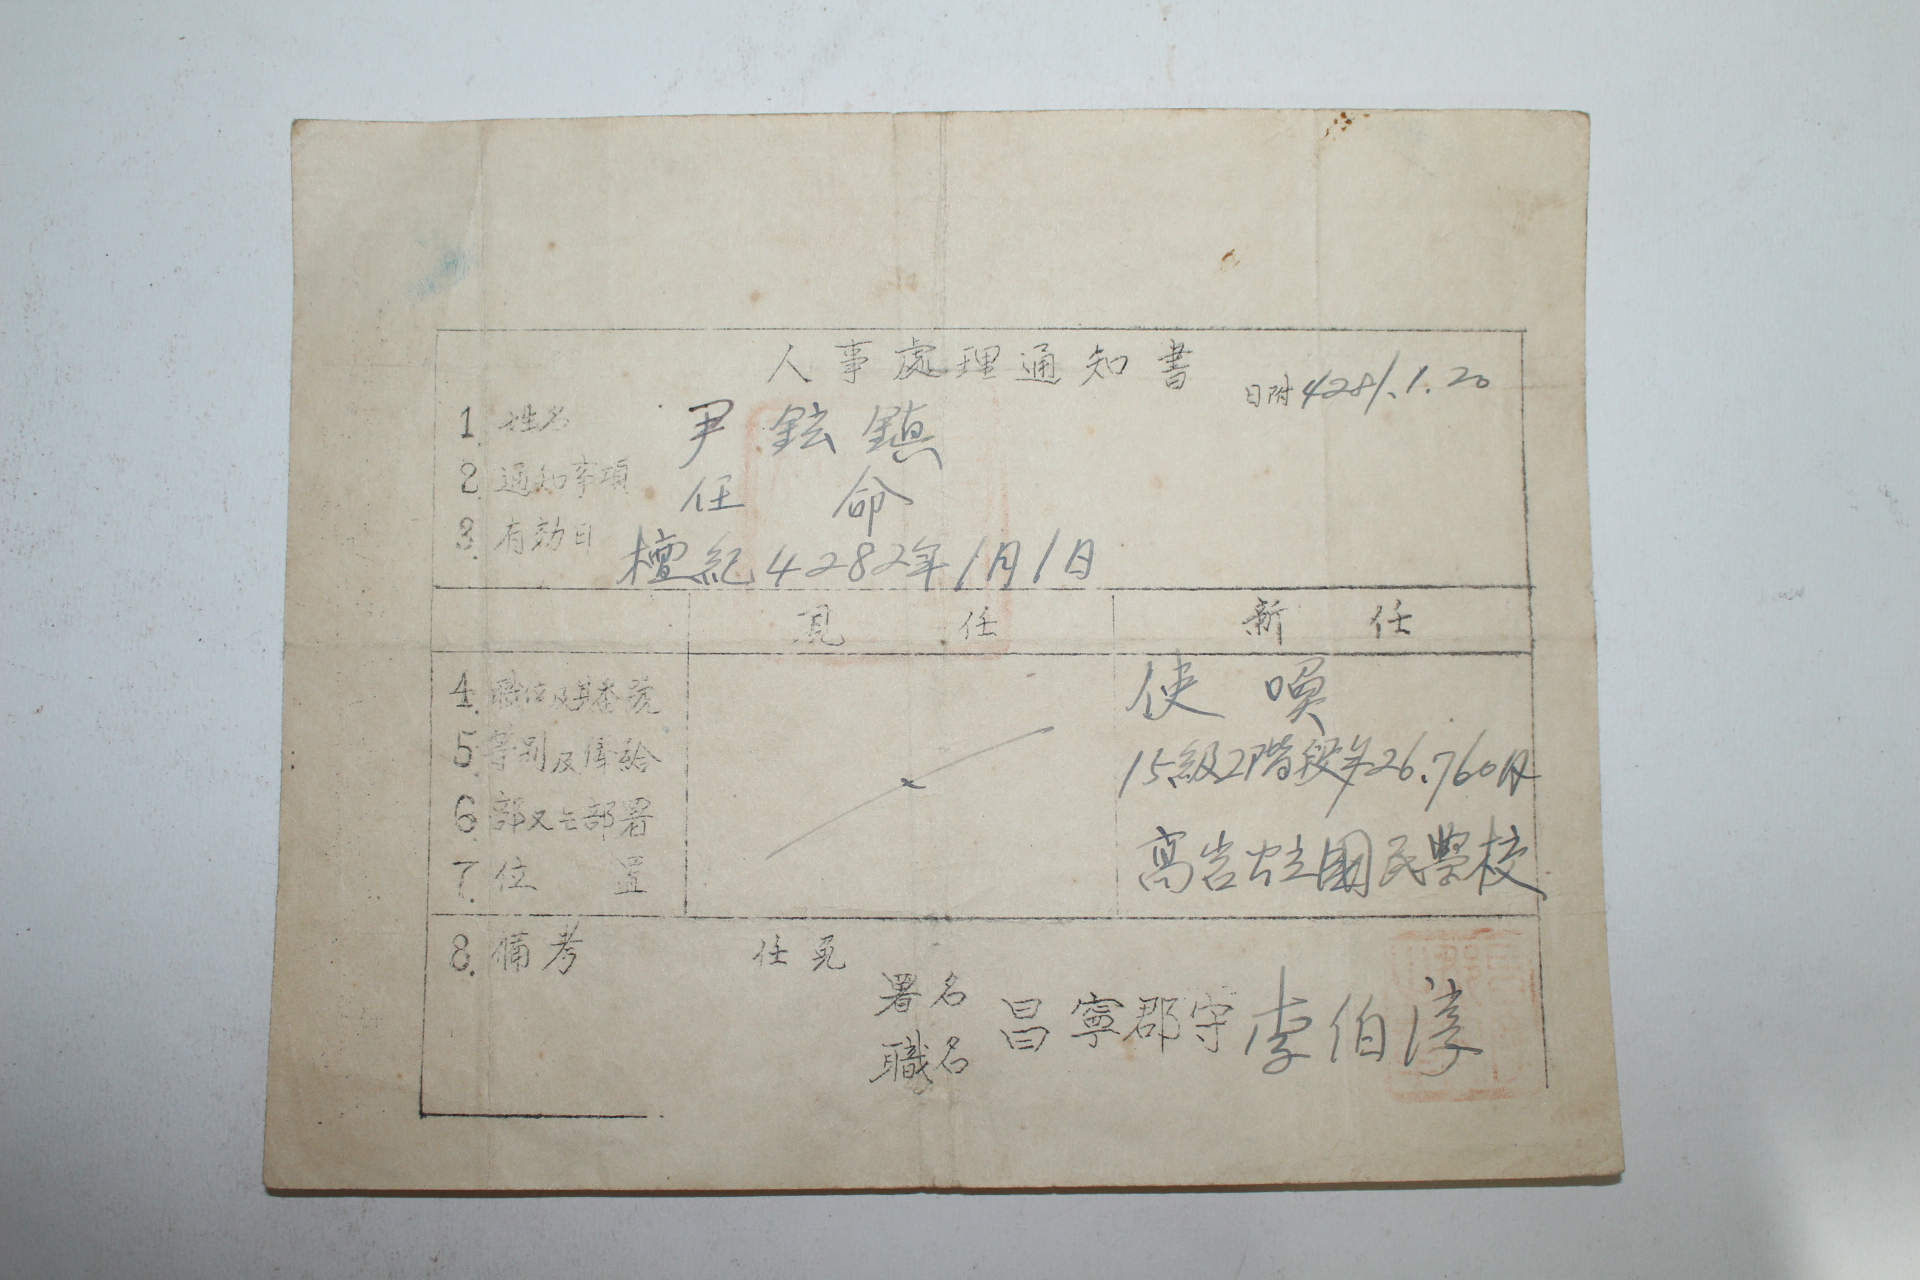 人事處理通知書
日附 4281.1.20
1. 姓名 尹鉉鎮
2. 通知事項 任命
3. 有効日 檀紀4282年1月1日
見任 新任
4. 職位及其番號 使喚
5. 等別及俸給 15級2階段年26.760円
6. 部又는部署
7. 位置 高岩公立國民學校
8. 備考 任免
署名
職名 昌寧郡守 李伯淳